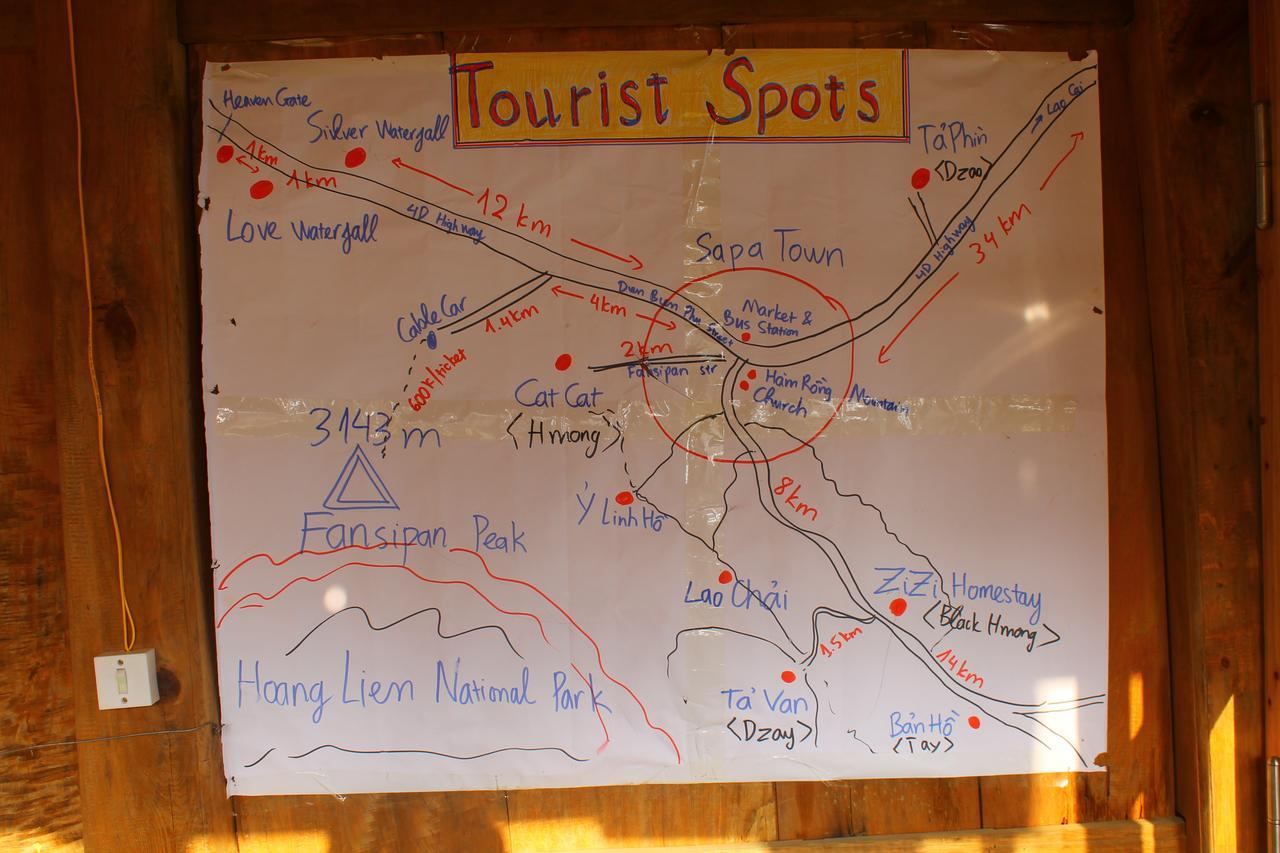 Tourist Spots
Heaven Gate
Silver Waterfall
1km
1km
Love Waterfall
4D Highway
12 km
Tả Phìn
<Dzao>
Lao Cai
4D Highway
34 km
Sapa Town
Cable Car
1.4km
600k/ticket
4km
Street
Market &
Bus Station
2km
Fansipan str
Hàm Rồng Mountain
Church
Cat Cat
<Hmong>
3143 m
Fansipan Peak
Ý Linh Hồ
8km
Lao Chải
ZiZi Homestay
<Black Hmong>
1.5km
14km
Hoang Lien National Park
Tả Van
<Dzay>
Bản Hồ
<Tay>